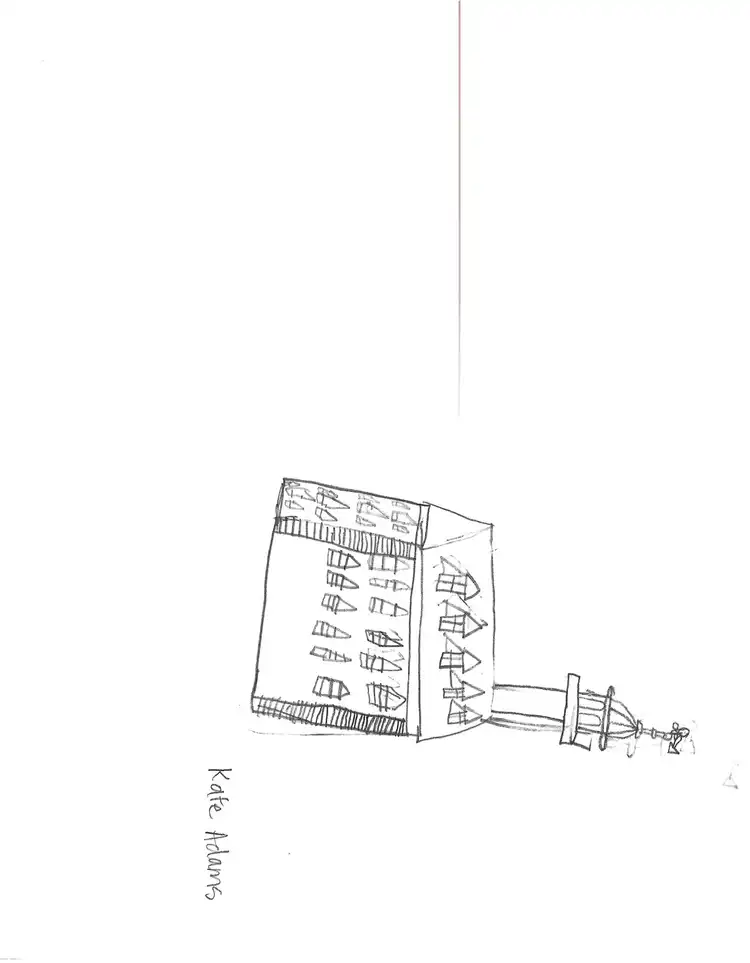 Kate Adams